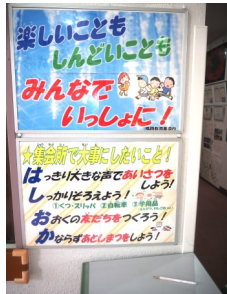 楽しいことも
しんどいことも
みんなで
いっしょに！
★集会所で大事にしたいこと！
はっきり大きな声であいさつを
しよう！
しっかりそろえよう！
①くつ・スリッパ ②自転車 ③学用品
おおくの友だちをつくろう！
かならずあとしまつをしよう！